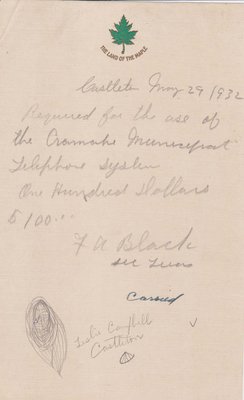 THE LAND OF THE MAPLE
Castleton May 29/1932
Required for the use of
the Cramahe Municipal
Telephone System
One Hundred Dollars
$100.00
F A Black
Sec Treas
Carried
Leslie Campbell
Castleton